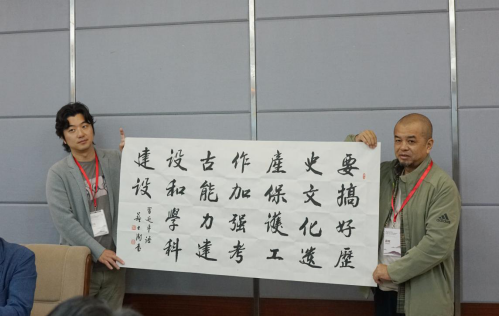 要搞好歷
史文化遺
產保護工
作加强考
古能力建
設和學科
建設
習近平語